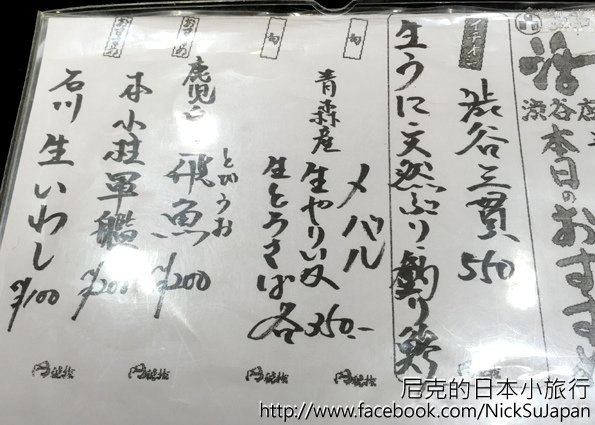 活
渋谷店
本日のおすすめ
渋谷三貫 550
生うに・天然ぶり・釣り鯵
旬
メバル
青森産 生やりいか
生とろさば 各350.-
旬
おすすめ
とびうお
鹿児島 飛魚 ¥200
おすすめ
本小柱軍艦 ¥200
おすすめ
石川 生いわし ¥100
尼克的日本小旅行
http://www.facebook.com/NickSuJapan